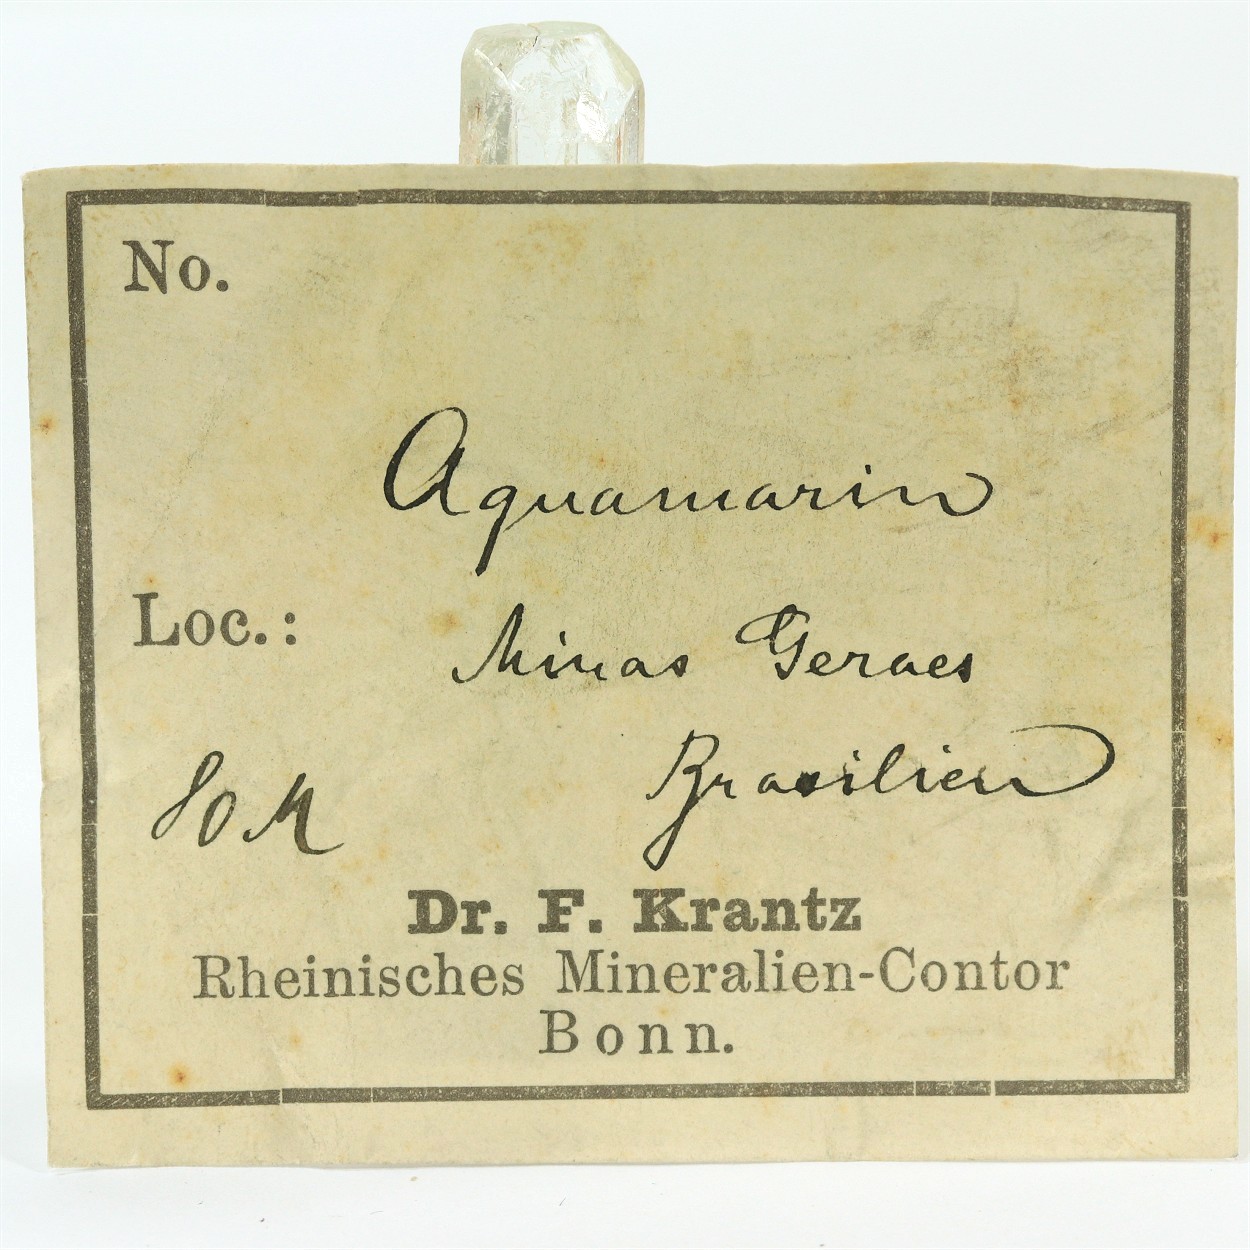 No.
Aquamarin
Loc.:
Minas Geraes
Brasilien
80 M
Dr. F. Krantz
Rheinisches Mineralien-Contor
Bonn.